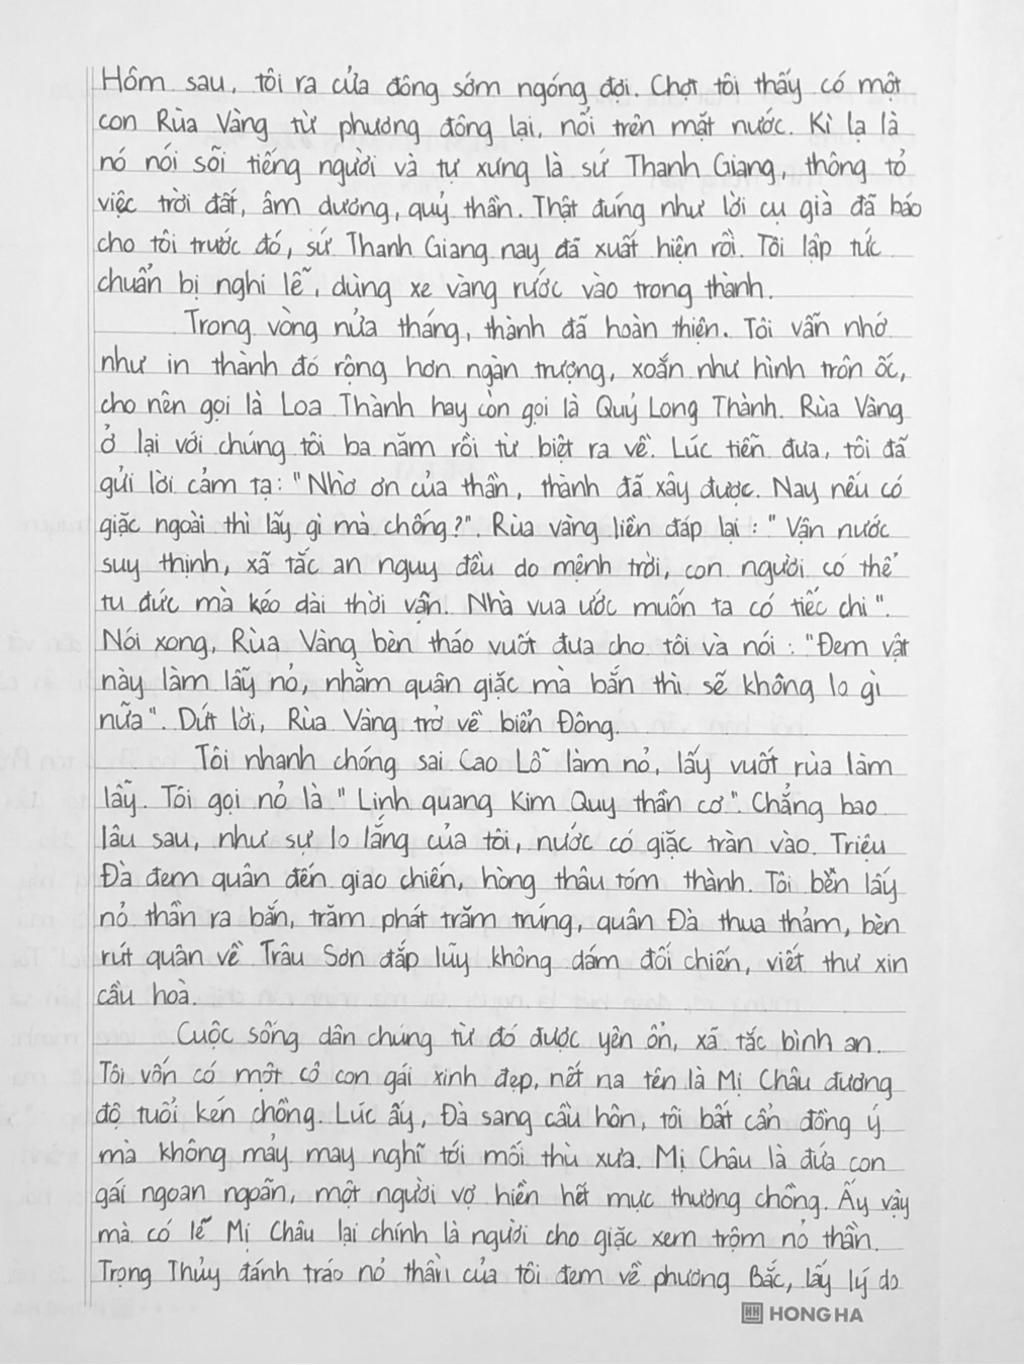 Hôm sau, tôi ra cửa đông sớm ngóng đợi. Chợt tôi thấy có một
con Rùa Vàng từ phương đông lại, nổi trên mặt nước. Kì lạ là
nó nói sõi tiếng người và tự xưng là sứ Thanh Giang, thông tỏ
việc trời đất, âm dương, quỷ thần. Thật đúng như lời cụ già đã báo
cho tôi trước đó, sứ Thanh Giang nay đã xuất hiện rồi. Tôi lập tức
chuẩn bị nghi lễ, dùng xe vàng rước vào trong thành.
Trong vòng nửa tháng, thành đã hoàn thiện. Tôi vẫn nhớ
như in thành đó rộng hơn ngàn trượng, xoắn như hình trôn ốc,
cho nên gọi là Loa Thành hay còn gọi là Quỷ Long Thành. Rùa Vàng
ở lại với chúng tôi ba năm rồi từ biệt ra về. Lúc tiễn đưa, tôi đã
gửi lời cảm tạ: "Nhờ ơn của thần, thành đã xây được. Nay nếu có
giặc ngoài thì lấy gì mà chống?". Rùa vàng liền đáp lại: "Vận nước
suy thịnh, xã tắc an nguy đều do mệnh trời, con người có thể
tu đức mà kéo dài thời vận. Nhà vua ước muốn ta có tiếc chi".
Nói xong, Rùa Vàng bèn tháo vuốt đưa cho tôi và nói: "Đem vật
này làm lẫy nỏ, nhằm quân giặc mà bắn thì sẽ không lo gì
nữa". Dứt lời, Rùa Vàng trở về biển Đông.
Tôi nhanh chóng sai Cao Lỗ làm nỏ, lấy vuốt rùa làm
lẫy. Tôi gọi nỏ là "Linh quang Kim Quy thần cơ". Chẳng bao
lâu sau, như sự lo lắng của tôi, nước có giặc tràn vào. Triệu
Đà đem quân đến giao chiến, hòng thâu tóm thành. Tôi bền lấy
nỏ thần ra bắn, trăm phát trăm trúng, quân Đà thua thảm, bèn
rút quân về Trâu Sơn đắp lũy không dám đối chiến, viết thư xin
cầu hoà.
Cuộc sống dân chúng từ đó được yên ổn, xã tắc bình an.
Tôi vốn có một cô con gái xinh đẹp, nết na tên là Mị Châu đương
độ tuổi kén chồng. Lúc ấy, Đà sang cầu hôn, tôi bất cẩn đồng ý
mà không mảy may nghĩ tới mối thù xưa. Mị Châu là đứa con
gái ngoan ngoãn, một người vợ hiền hết mực thương chồng. Ấy vậy
mà có lẽ Mị Châu lại chính là người cho giặc xem trộm nỏ thần.
Trọng Thủy đánh tráo nỏ thần của tôi đem về phương Bắc, lấy lý do
HONG HA